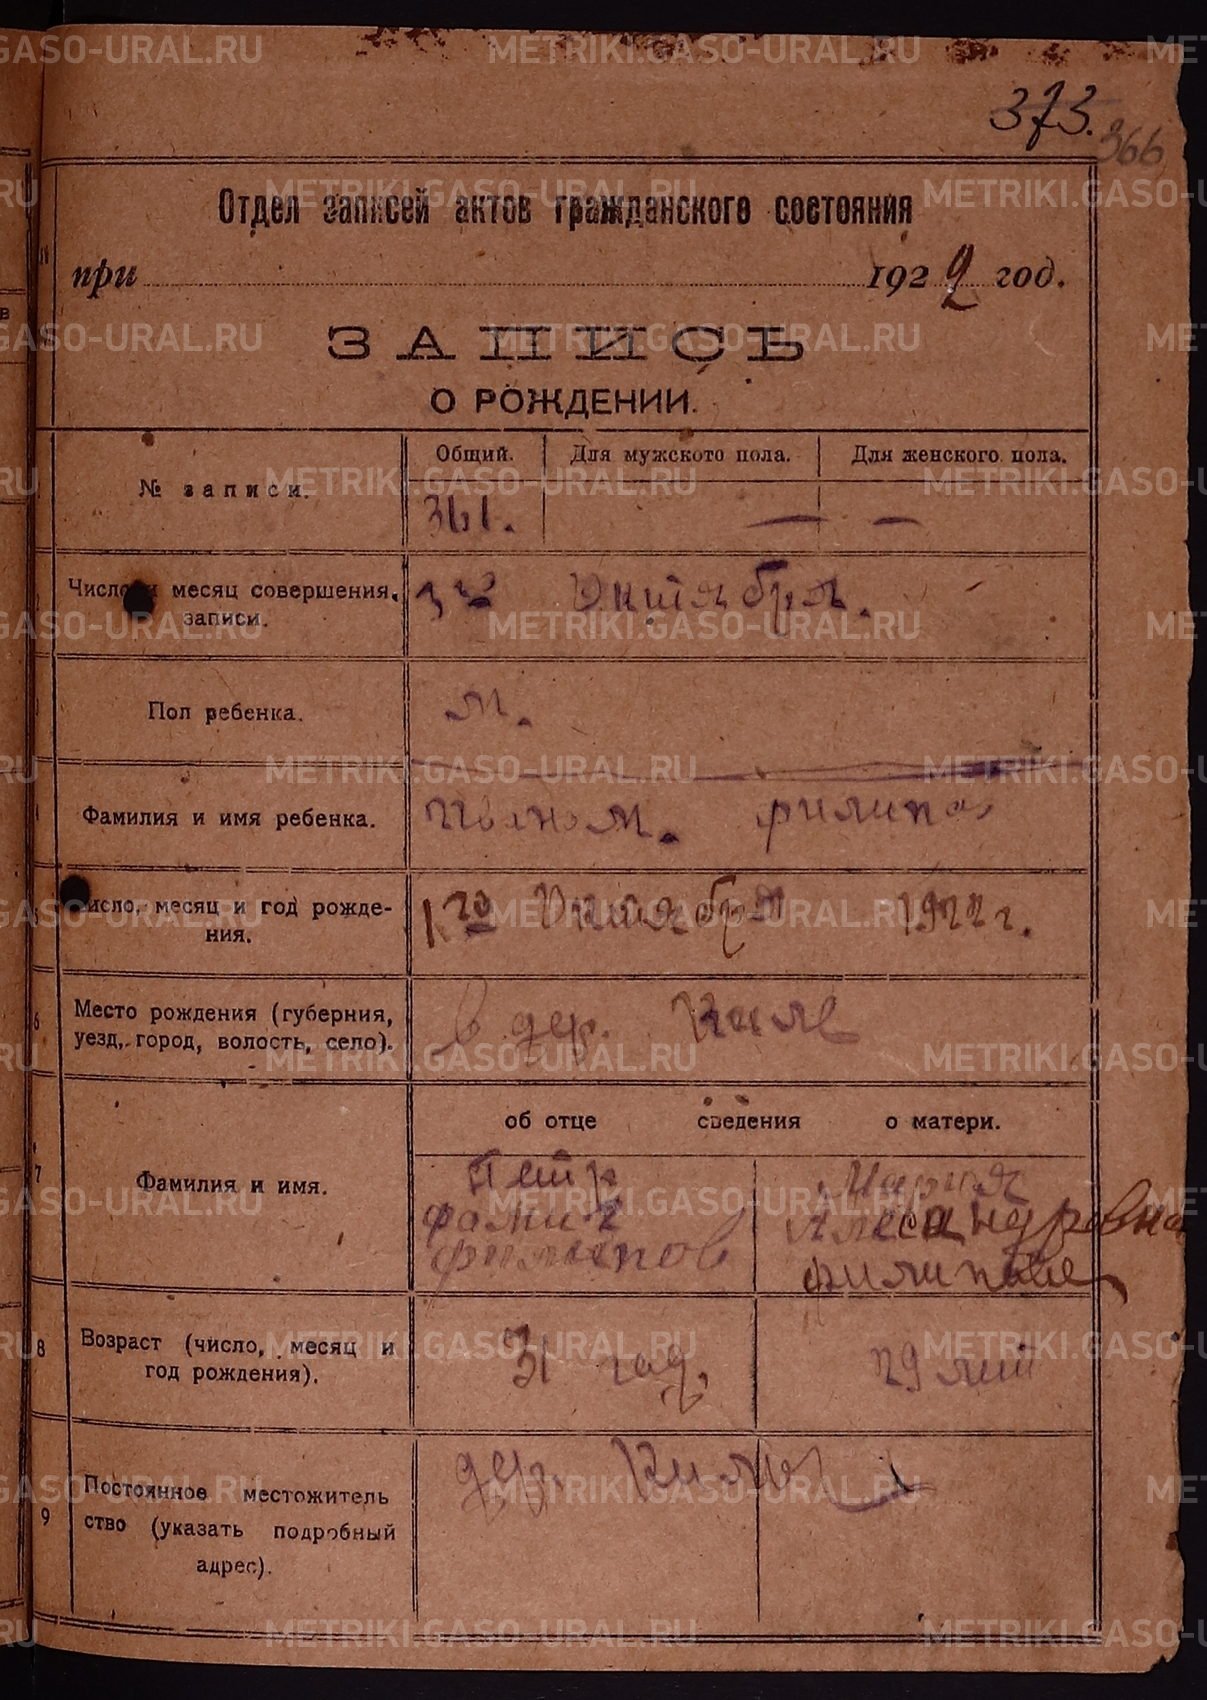 373.
366
Отдел записей актов гражданского состояния
при 1922 год.
ЗАПИСЬ
О РОЖДЕНИИ.
№ записи.
Общий. Для мужского пола. Для женского пола.
361. — —
Число и месяц совершения записи.
3го Октября.
Пол ребенка.
м.
Фамилия и имя ребенка.
Число, месяц и год рождения.
1го Октября 1922 г.
6 Место рождения (губерния, уезд, город, волость, село).
в дер.
об отце сведения о матери.
7 Фамилия и имя.
Петр
Филипов
Мария
Алесандровна
8 Возраст (число, месяц и год рождения).
31 год.
29 лет
9 Постоянное местожительство (указать подробный адрес).
дер.
METRIKI.GASO-URAL.RU